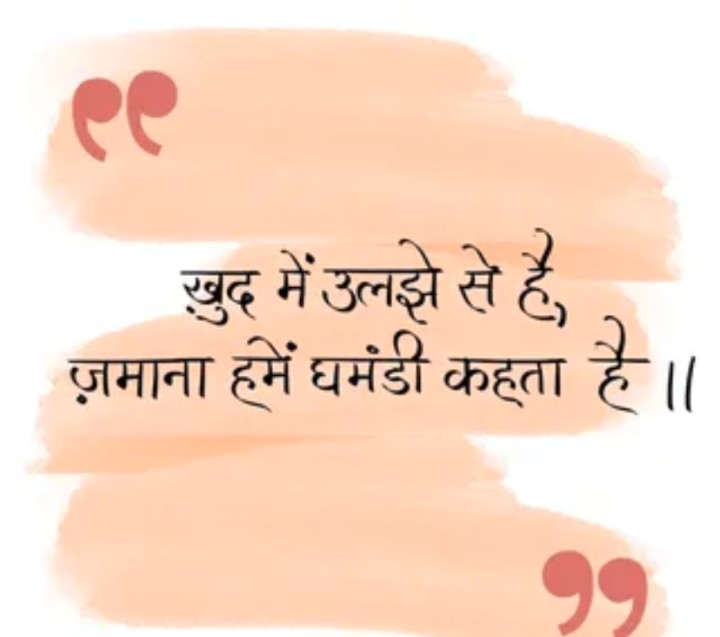 ख़ुद में उलझे से है,
ज़माना हमें घमंडी कहता है ॥